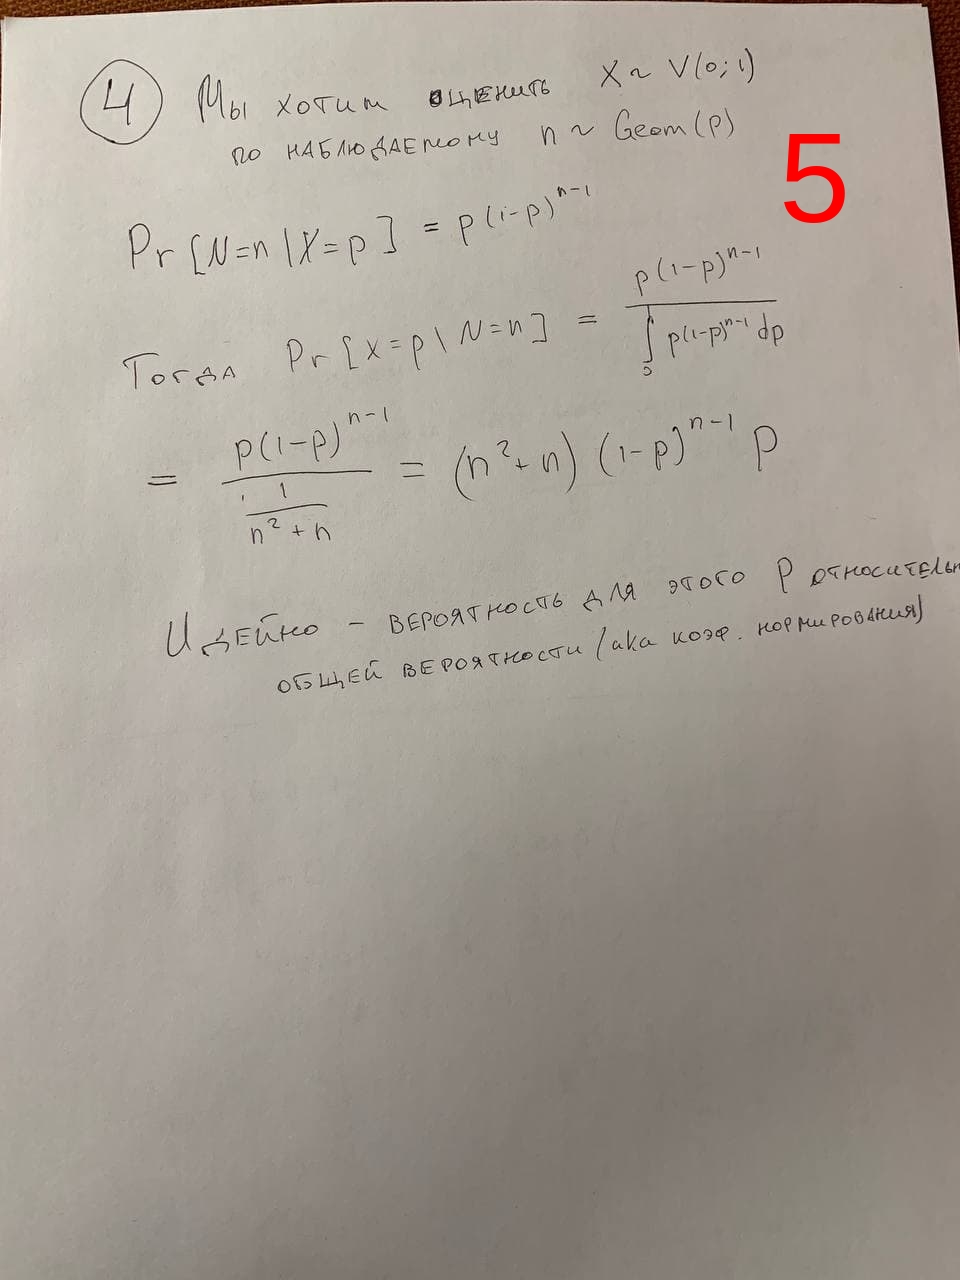 4 Мы хотим оценить X ~ V(0;1)
по наблюдаемому n ~ Geom(p)
5
Pr[N=n | X=p] = p(1-p)^{n-1}
Тогда Pr[X=p \ N=n] = \frac{p(1-p)^{n-1}}{\int_0^1 p(1-p)^{n-1} dp}
= \frac{p(1-p)^{n-1}}{\frac{1}{n^2+n}} = (n^2+n) (1-p)^{n-1} p
Идейно - вероятность для этого p относительн
общей вероятности (aka коэф. нормирования)